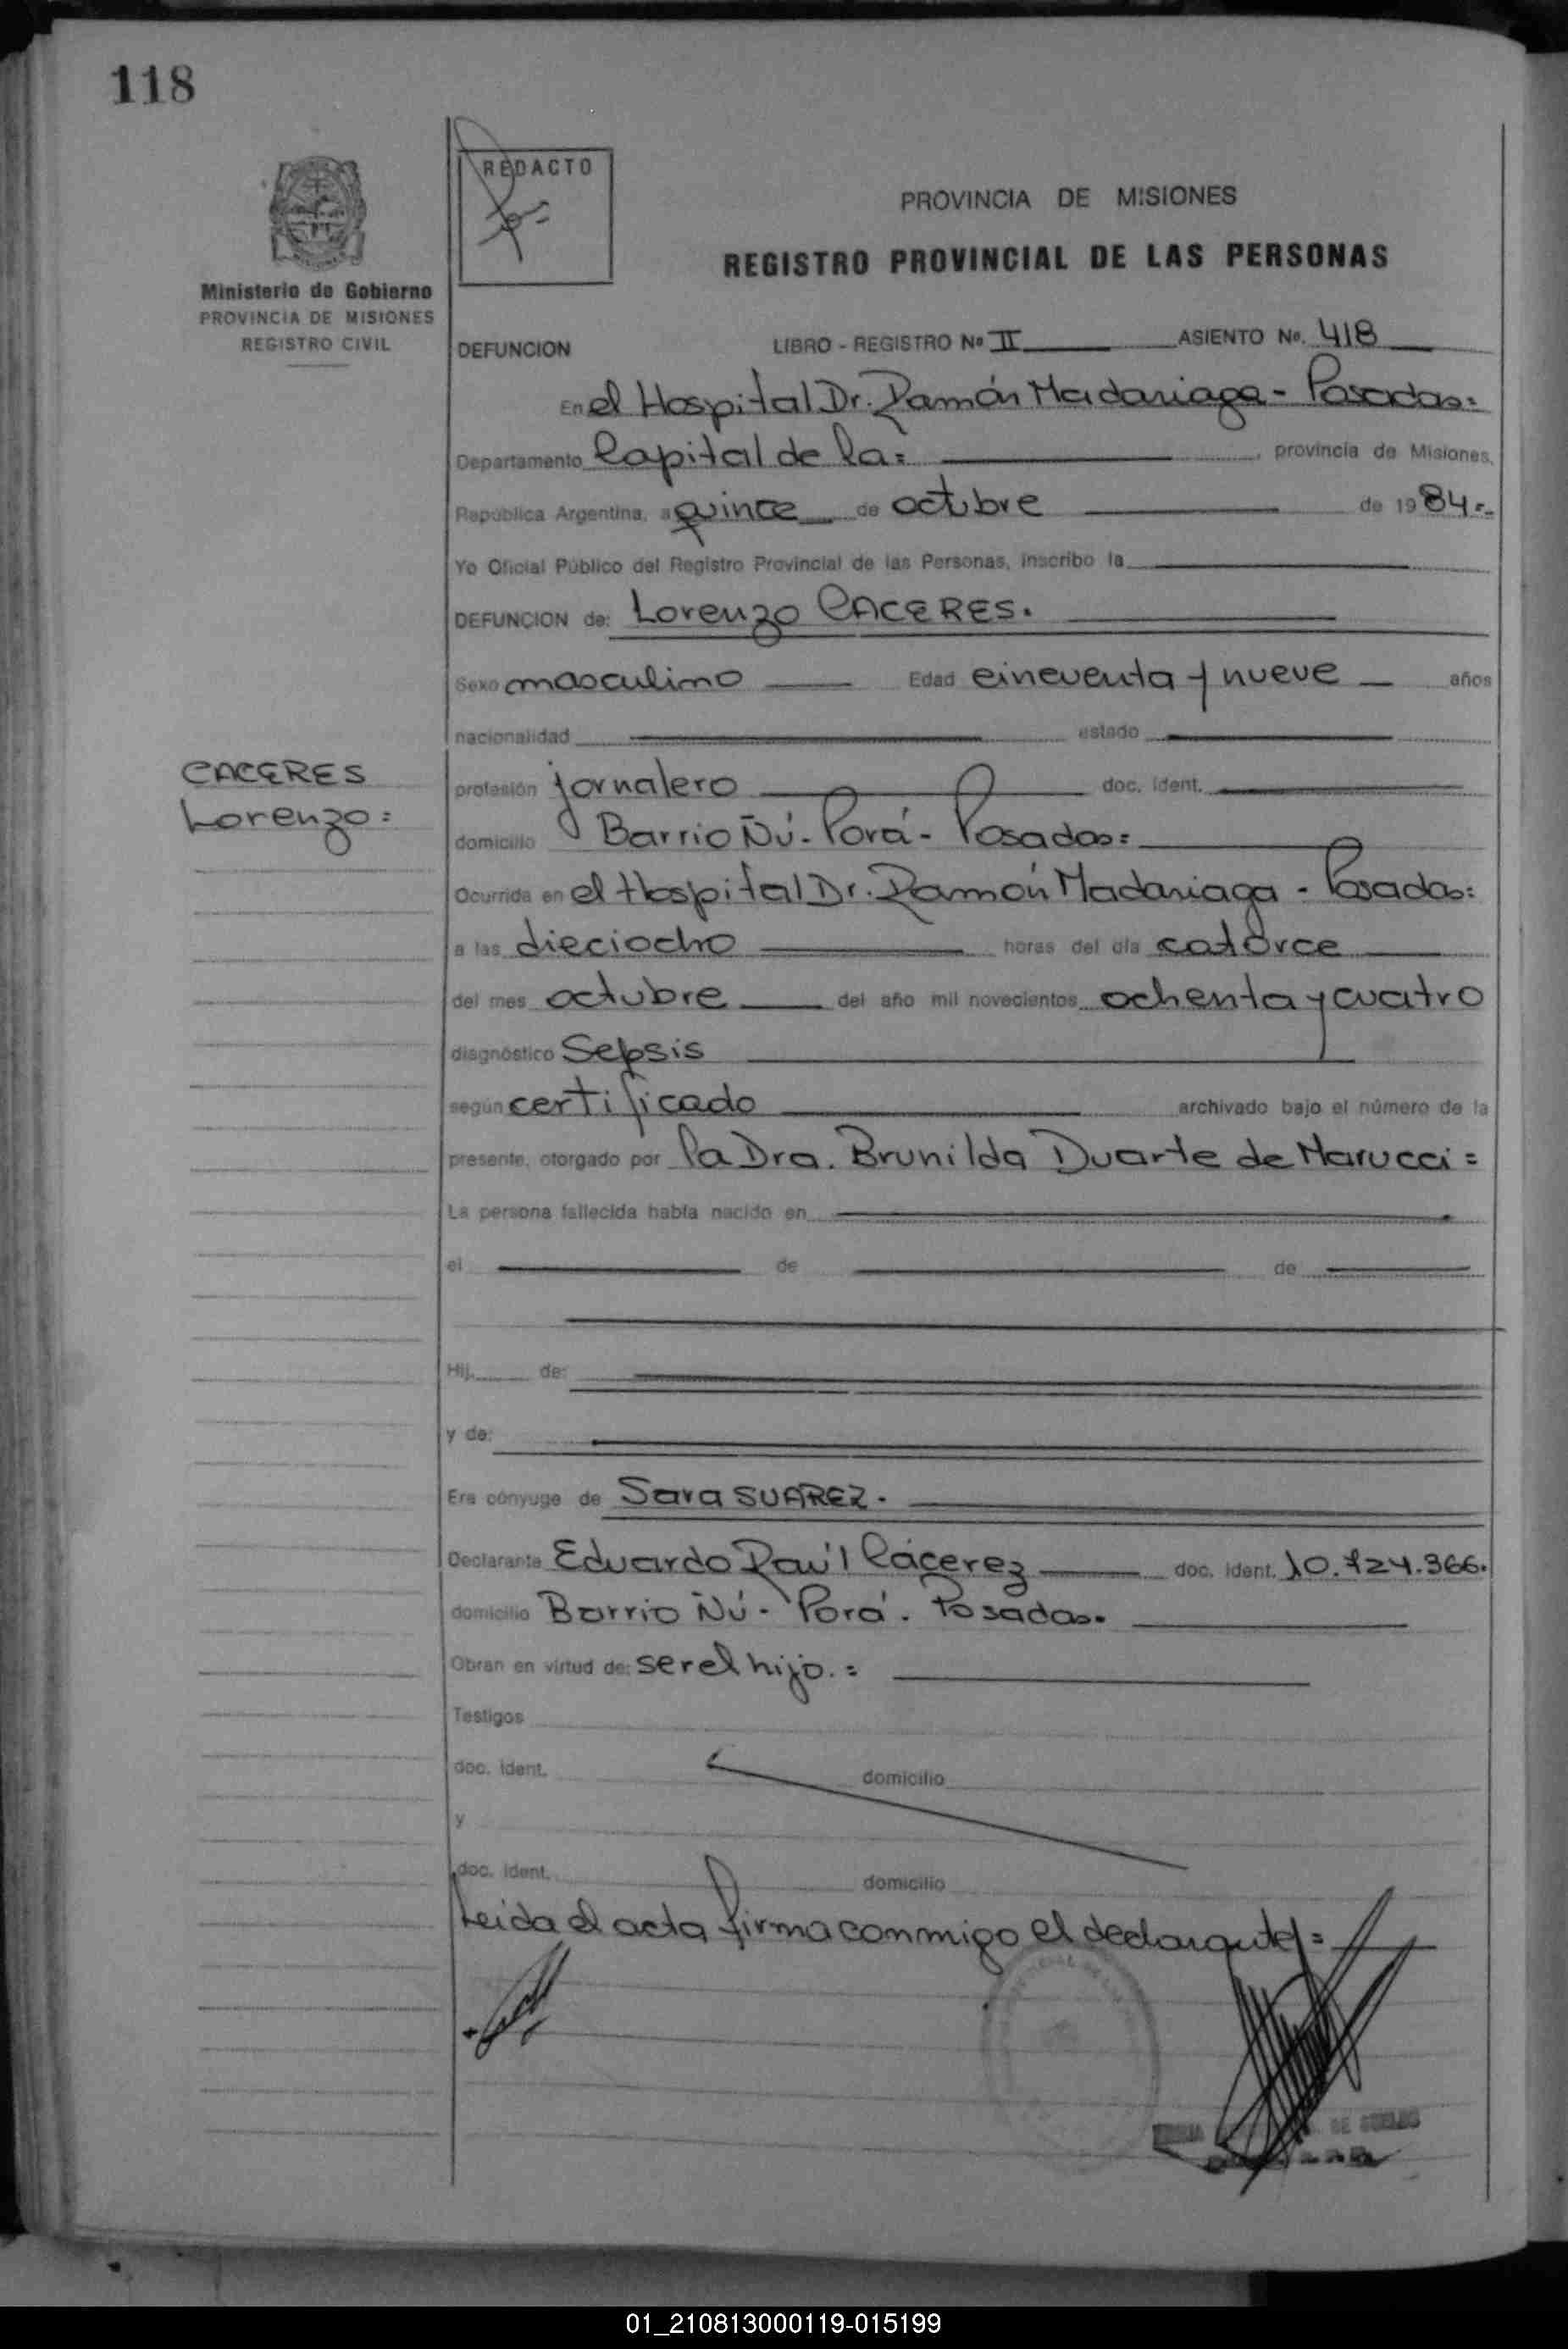 118
REDACTO
PROVINCIA DE MISIONES
REGISTRO PROVINCIAL DE LAS PERSONAS
Ministerio de Gobierno
PROVINCIA DE MISIONES
REGISTRO CIVIL
DEFUNCION LIBRO - REGISTRO Nº II ASIENTO Nº. 418
En el Hospital Dr. Ramón Madariaga - Posadas=
Departamento Capital de la= , provincia de Misiones,
República Argentina, a quince de octubre de 1984.-
Yo Oficial Público del Registro Provincial de las Personas, inscribo la
DEFUNCION de: Lorenzo CACERES.
Sexo masculino Edad cincuenta y nueve años
nacionalidad estado
CACERES
Lorenzo=
profesión jornalero doc. ident.
domicilio Barrio Ñú-Porá- Posadas=
Ocurrida en el Hospital Dr. Ramón Madariaga - Posadas=
a las dieciocho horas del día catorce
del mes octubre del año mil novecientos ochenta y cuatro
diagnóstico Sepsis
según certificado archivado bajo el número de la
presente, otorgado por la Dra. Brunilda Duarte de Marucci=
La persona fallecida había nacido en
el de de
Hij de:
y de:
Era cónyuge de Sara SUAREZ.
Declarante Eduardo Raúl Cácerez doc. ident. 10.124.366.
domicilio Barrio Ñú- Porá. Posadas.
Obran en virtud de: ser el hijo.=
Testigos
doc. ident. domicilio
y
doc. ident. domicilio
Leida el acta firma conmigo el declarante=
01_210813000119-015199